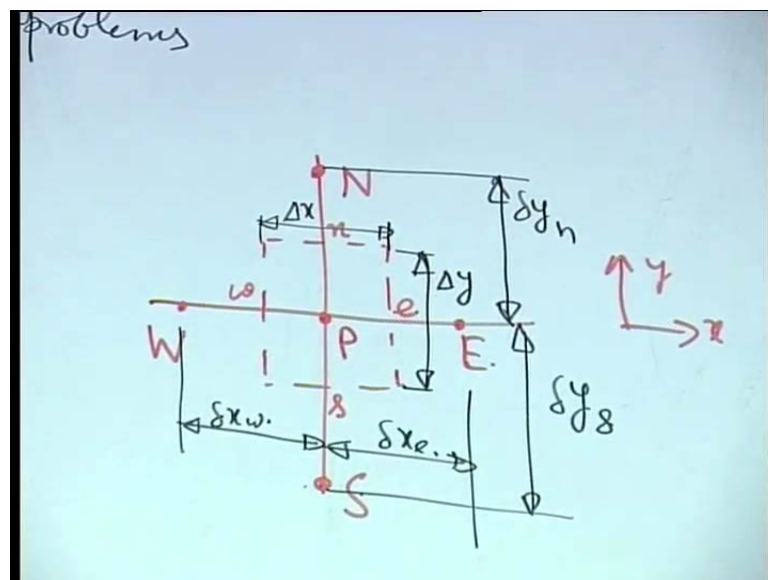 problems
N
Δx
n
δyn
Δy
y
x
w
e
W
P
E.
s
δxw.
δxe.
δys
S